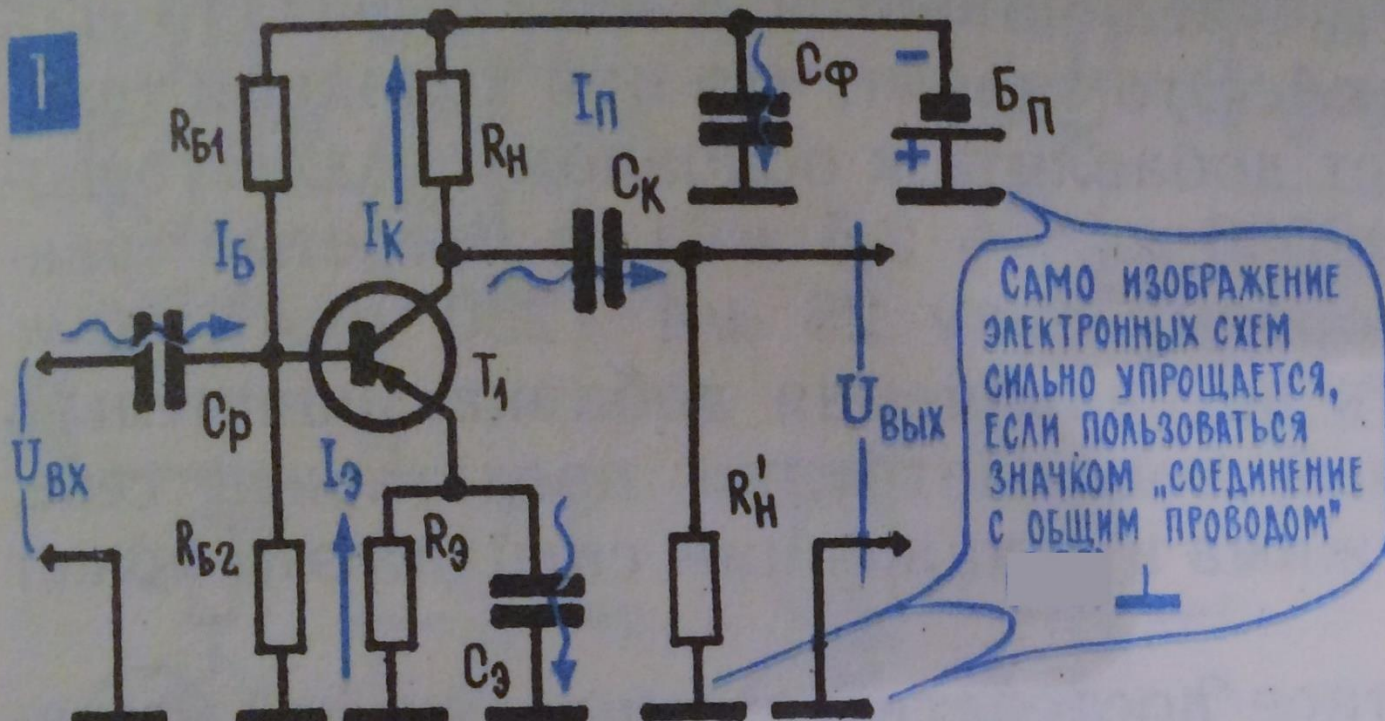 1
Cф
-
Бп
+
RБ1
Rн
Iп
Cк
IБ
Iк
Cр
T1
Uвх
Uвых
Iэ
RБ2
Rэ
Cэ
Rн'
САМО ИЗОБРАЖЕНИЕ
ЭЛЕКТРОННЫХ СХЕМ
СИЛЬНО УПРОЩАЕТСЯ,
ЕСЛИ ПОЛЬЗОВАТЬСЯ
ЗНАЧКОМ „СОЕДИНЕНИЕ
С ОБЩИМ ПРОВОДОМ"